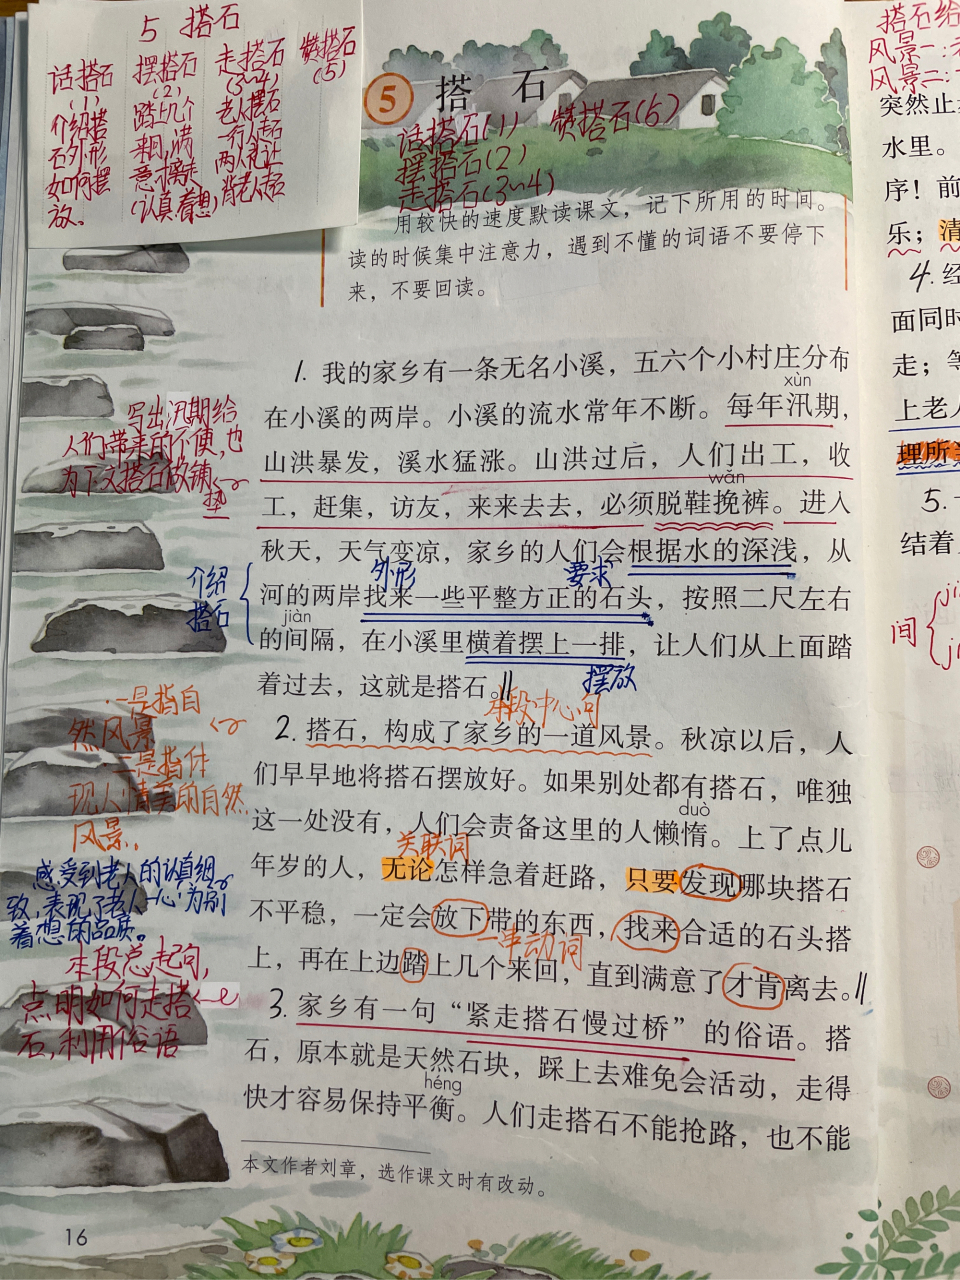 5 搭石
话搭石
(1)
介绍搭
石外形
如何摆
放。
摆搭石
(2)
踏上几个
来回,满
意才离去
(认真,着想)
走搭石
(3~4)
老人摆石
一行人走石
两人礼让
背老人走石
赞搭石
(5)
5 搭石
话搭石(1) 赞搭石(5)
摆搭石(2)
走搭石(3~4)
用较快的速度默读课文，记下所用的时间。
读的时候集中注意力，遇到不懂的词语不要停下
来，不要回读。
1. 我的家乡有一条无名小溪，五六个小村庄分布
xùn
在小溪的两岸。小溪的流水常年不断。每年汛期，
山洪暴发，溪水猛涨。山洪过后，人们出工，收
wǎn
工，赶集，访友，来来去去，必须脱鞋挽裤。进入
秋天，天气变凉，家乡的人们会根据水的深浅，从
外形 要求
河的两岸找来一些平整方正的石头，按照二尺左右
jiàn
的间隔，在小溪里横着摆上一排，让人们从上面踏
摆放
着过去，这就是搭石。
本段中心句
2. 搭石，构成了家乡的一道风景。秋凉以后，人
们早早地将搭石摆放好。如果别处都有搭石，唯独
duò
这一处没有，人们会责备这里的人懒惰。上了点儿
关联词
年岁的人，无论怎样急着赶路，只要发现哪块搭石
不平稳，一定会放下带的东西，找来合适的石头搭
一串动词
上，再在上边踏上几个来回，直到满意了才肯离去。
3. 家乡有一句“紧走搭石慢过桥”的俗语。搭
石，原本就是天然石块，踩上去难免会活动，走得
héng
快才容易保持平衡。人们走搭石不能抢路，也不能
本文作者刘章，选作课文时有改动。
16
写出汛期给
人们带来的不便,也
为下文搭石做铺
垫
介绍
搭石
一是指自
然风景
二是指体
现人情美的自然
风景.
感受到老人的认真细
致,表现了老人一心为别
着想的品质。
本段总起句,
点明如何走搭
石,利用俗语
搭石给
风景一:
风景二:
突然止
水里。
序！前
乐；清
4. 经
面同时
走；等
上老人
理所
5.
结着
间